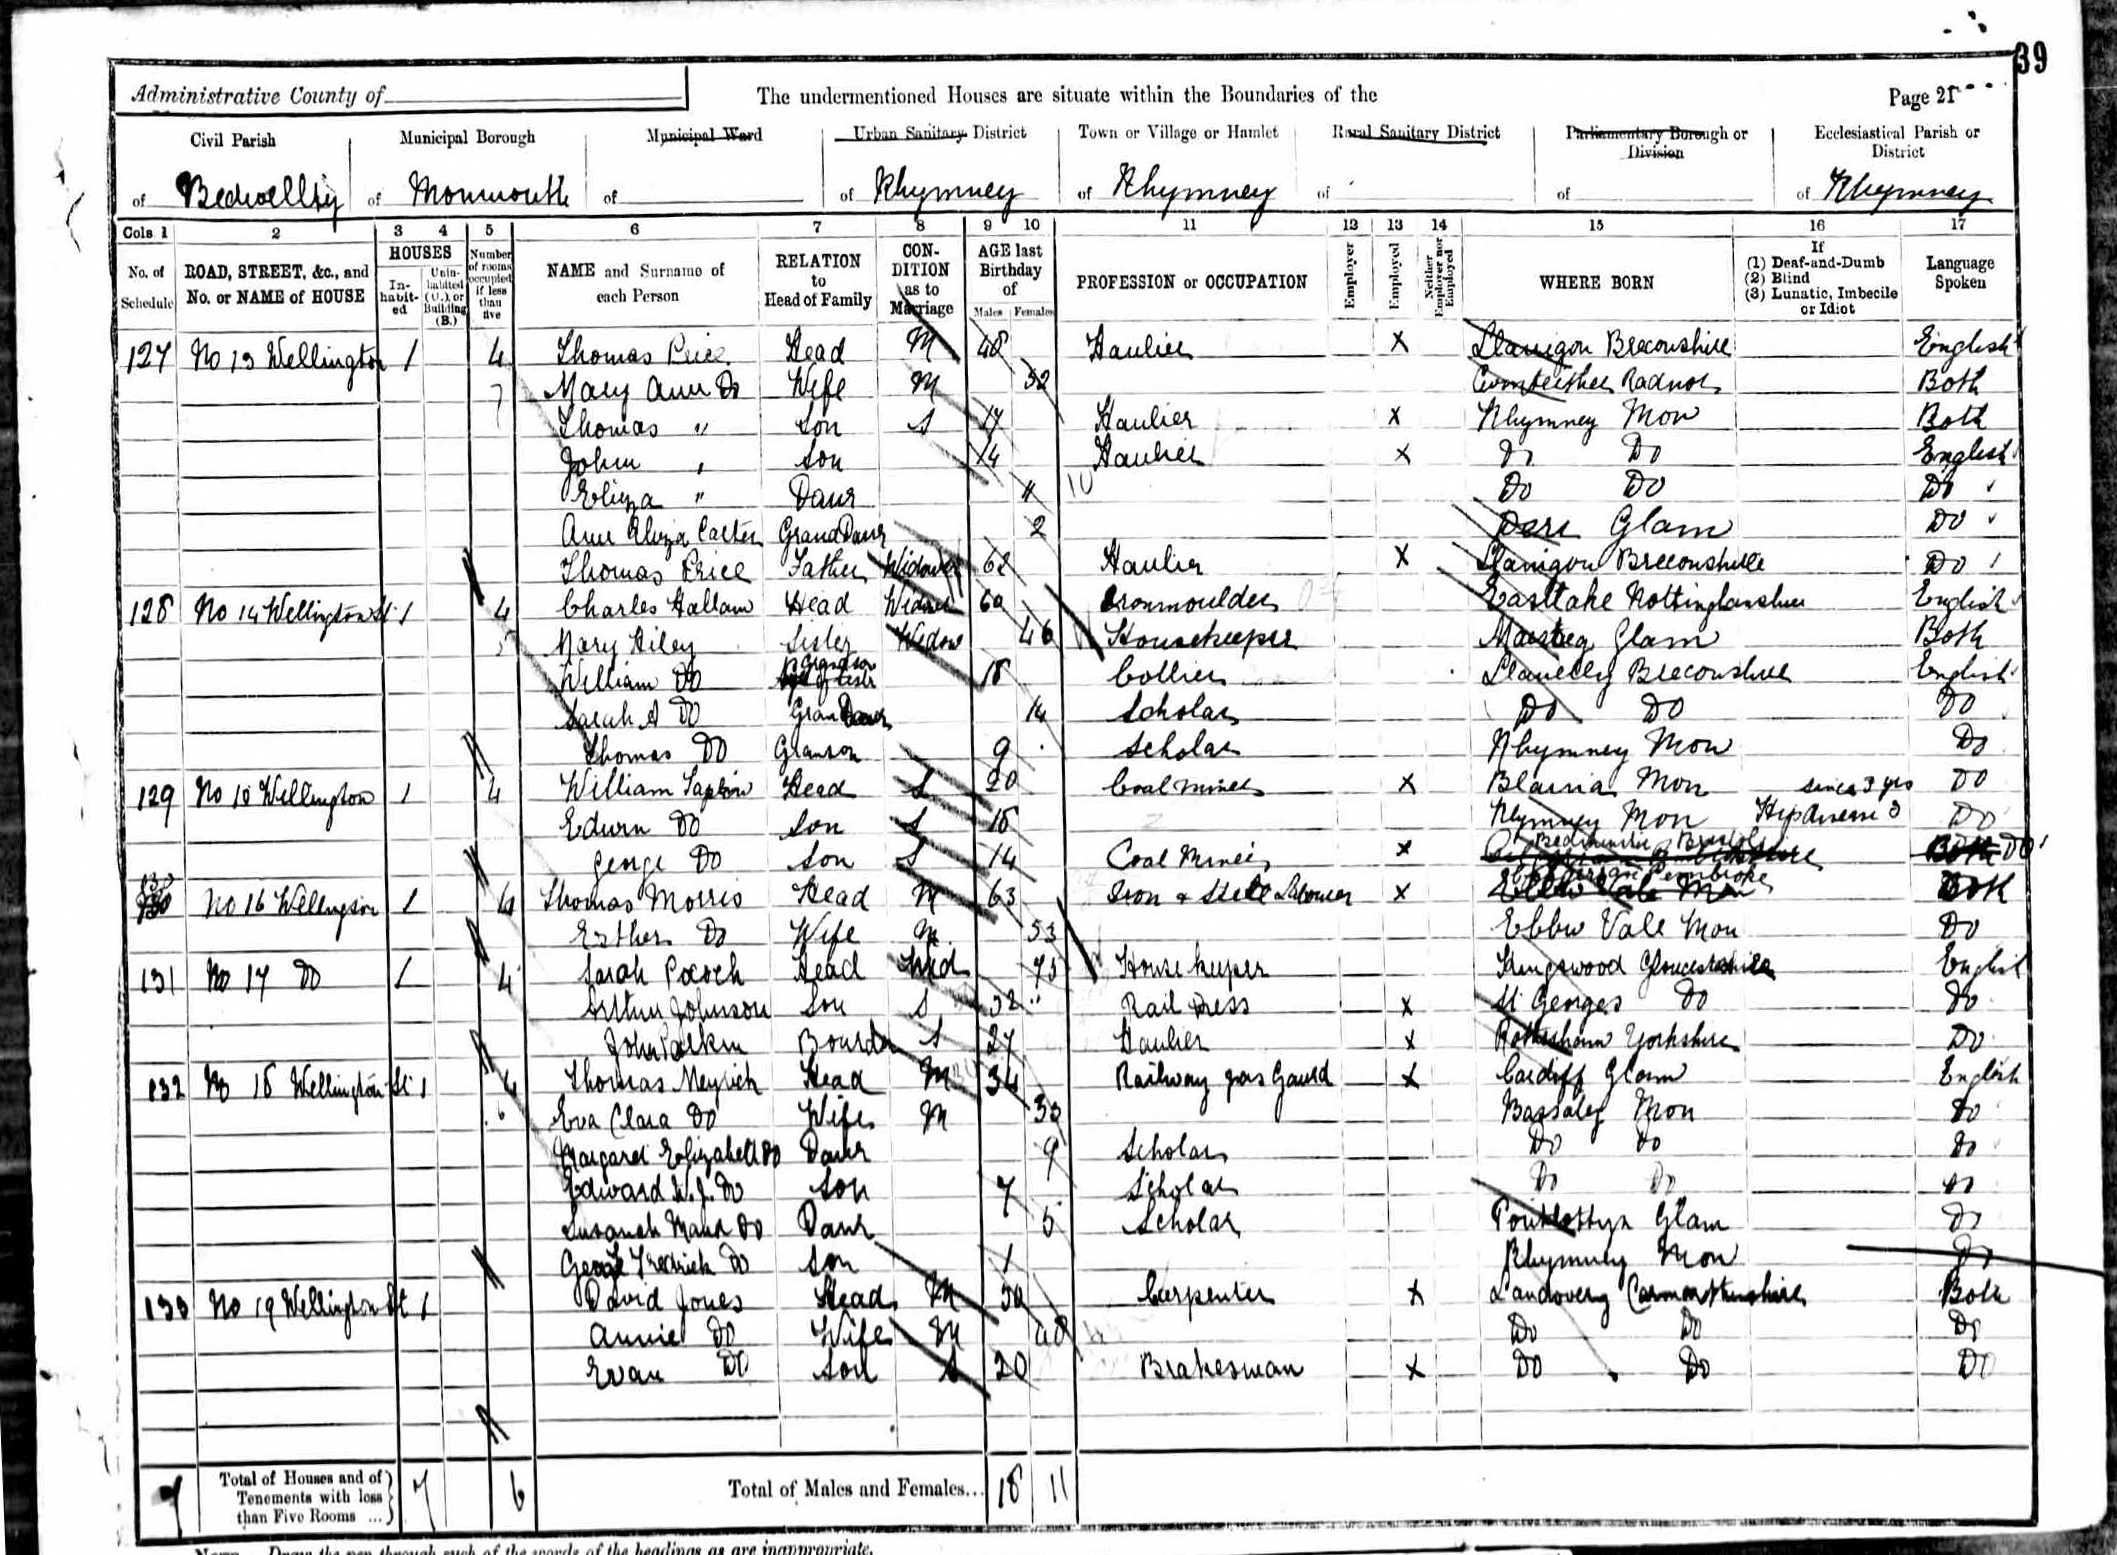 39
Administrative County of
The undermentioned Houses are situate within the Boundaries of the
Page 21
Civil Parish Municipal Borough Municipal Ward Urban Sanitary District Town or Village or Hamlet Rural Sanitary District Parliamentary Borough or Division Ecclesiastical Parish or District
of Bedwellty of Monmouth of of Rhymney of Rhymney of of of Rhymney
Cols 1 2 3 4 5 6 7 8 9 10 11 12 13 14 15 16 17
No. of Schedule ROAD, STREET, &c., and No. or NAME of HOUSE HOUSES Inhabited Uninhabited (U.), or Building (B.) Number of rooms occupied if less than five NAME and Surname of each Person RELATION to Head of Family CONDITION as to Marriage AGE last Birthday of Males Females PROFESSION or OCCUPATION Employer Employed Neither Employer nor Employed WHERE BORN If (1) Deaf-and-Dumb (2) Blind (3) Lunatic, Imbecile or Idiot Language Spoken
127 No 13 Wellington 1 4 Thomas Price Head M 48 Haulier X Llanigon Breconshire English
7 Mary Ann Do Wife M 52 Radnor Both
Thomas " Son S 17 Haulier X Rhymney Mon Both
John " Son 14 Haulier X Do Do English
Eliza " Daur 11 10 Do Do Do
Ann Eliza Carter GrandDaur 2 Glam Do
Thomas Price Father Widower 62 Haulier X Llanigon Breconshire Do
128 No 14 Wellington St 1 4 Charles Hallam Head Widower 60 Ironmoulder Nottinghamshire English
5 Mary Hiley Sister Widow 46 Housekeeper Maesteg Glam Both
William Do Grandson 18 Collier Llanelly Breconshire English
Sarah A Do Gran Daur 14 Scholar Do Do Do
Thomas Do Granson 9 Scholar Rhymney Mon Do
129 No 15 Wellington 1 4 William Head S 20 Coal Miner X Blaina Mon since 3 yrs Do
Edwin Do Son S 18 Rhymney Mon Hip disease 3 Do
George Do Son S 14 Coal Miner X Bedminster Bristol Both Do
130 No 16 Wellington 1 4 Thomas Morris Head M 63 Iron & Steel Labourer X Pembroke Ebbw Vale Mon Both
Esther Do Wife M 53 Ebbw Vale Mon Do
131 No 17 Do 1 4 Sarah Pocock Head Wid 75 Housekeeper Kingswood Gloucestershire English
Arthur Johnson Son S 32 " Rail X St Georges Do Do
John Boarder S 27 Haulier X Rotherham Yorkshire Do
132 No 18 Wellington St 1 4 Thomas Meyrich Head M 34 Railway pas Gaurd X Cardiff Glam English
6 Eva Clara Do Wife M 33 Bassaleg Mon Do
Margaret Elizabeth Do Daur 9 Scholar Do Do Do
Edward W. J. Do Son 7 Scholar Do Do Do
Susanah Maud Do Daur 5 Scholar Pontlottyn Glam Do
George Fredrick Do Son 1 Rhymney Mon Do
133 No 19 Wellington St 1 David Jones Head M 50 Carpenter X Landovery Carmarthenshire Both
Annie Do Wife M 48 Do Do Do
Evan Do Son S 20 Brakesman X Do Do Do
7 Total of Houses and of Tenements with less than Five Rooms ... 7 6 Total of Males and Females... 18 11
Note.—Draw the pen through such of the words of the headings as are inappropriate.